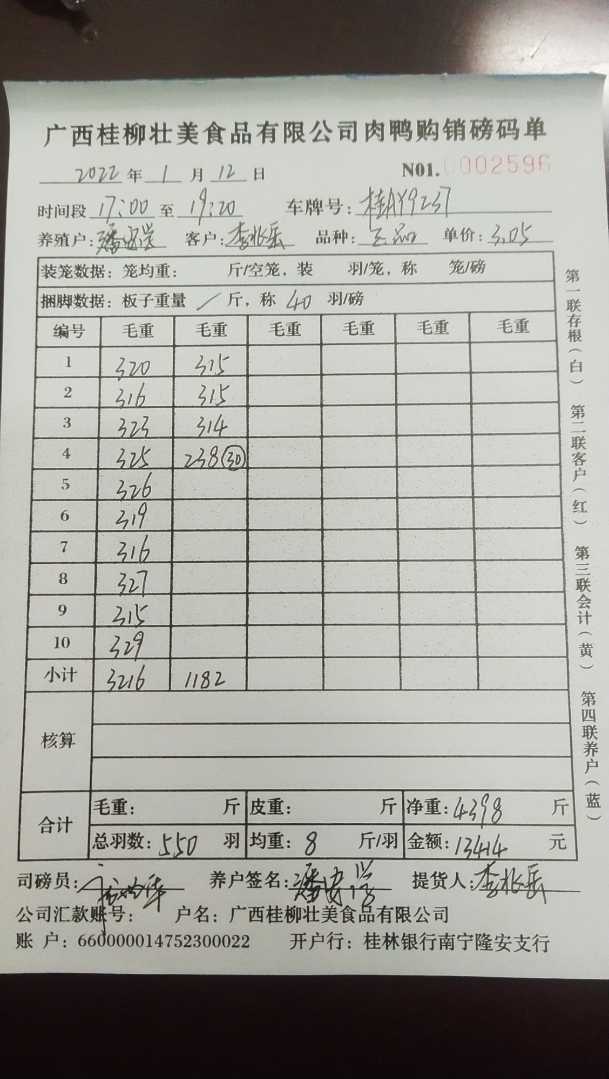 广西桂柳壮美食品有限公司肉鸭购销磅码单
2022 年 1 月 12 日 N01.0002596
时间段 17:00 至 19:20 车牌号: 桂AY9237
养殖户: 客户: 李兆岳 品种: 正品 单价: 3.05
装笼数据: 笼均重: 斤/空笼, 装 羽/笼, 称 笼/磅
捆脚数据: 板子重量 / 斤, 称 40 羽/磅
编号 毛重 毛重 毛重 毛重 毛重 毛重
1 320 315
2 316 315
3 323 314
4 325 238 (30)
5 326
6 319
7 316
8 327
9 315
10 329
小计 3216 1182
核算
合计 毛重: 斤 皮重: 斤 净重: 4398 斤
总羽数: 550 羽 均重: 8 斤/羽 金额: 13414 元
司磅员: 养户签名: 提货人: 李兆岳
公司汇款账号: 户名: 广西桂柳壮美食品有限公司
账 户: 660000014752300022 开户行: 桂林银行南宁隆安支行
第一联存根(白) 第二联客户(红) 第三联会计(黄) 第四联养户(蓝)